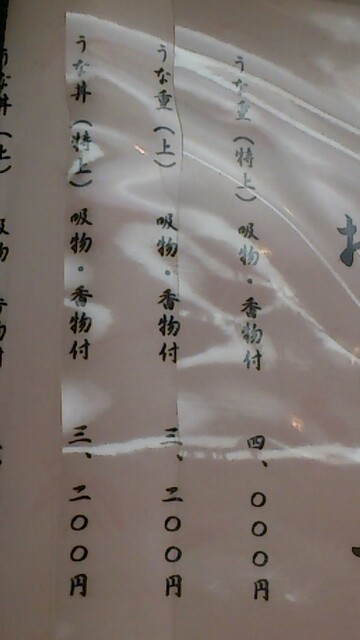 うな重(特上) 吸物・香物付 四、〇〇〇円
うな重(上) 吸物・香物付 三、二〇〇円
うな丼(特上) 吸物・香物付 三、二〇〇円
うな丼(上) 吸物・香物付